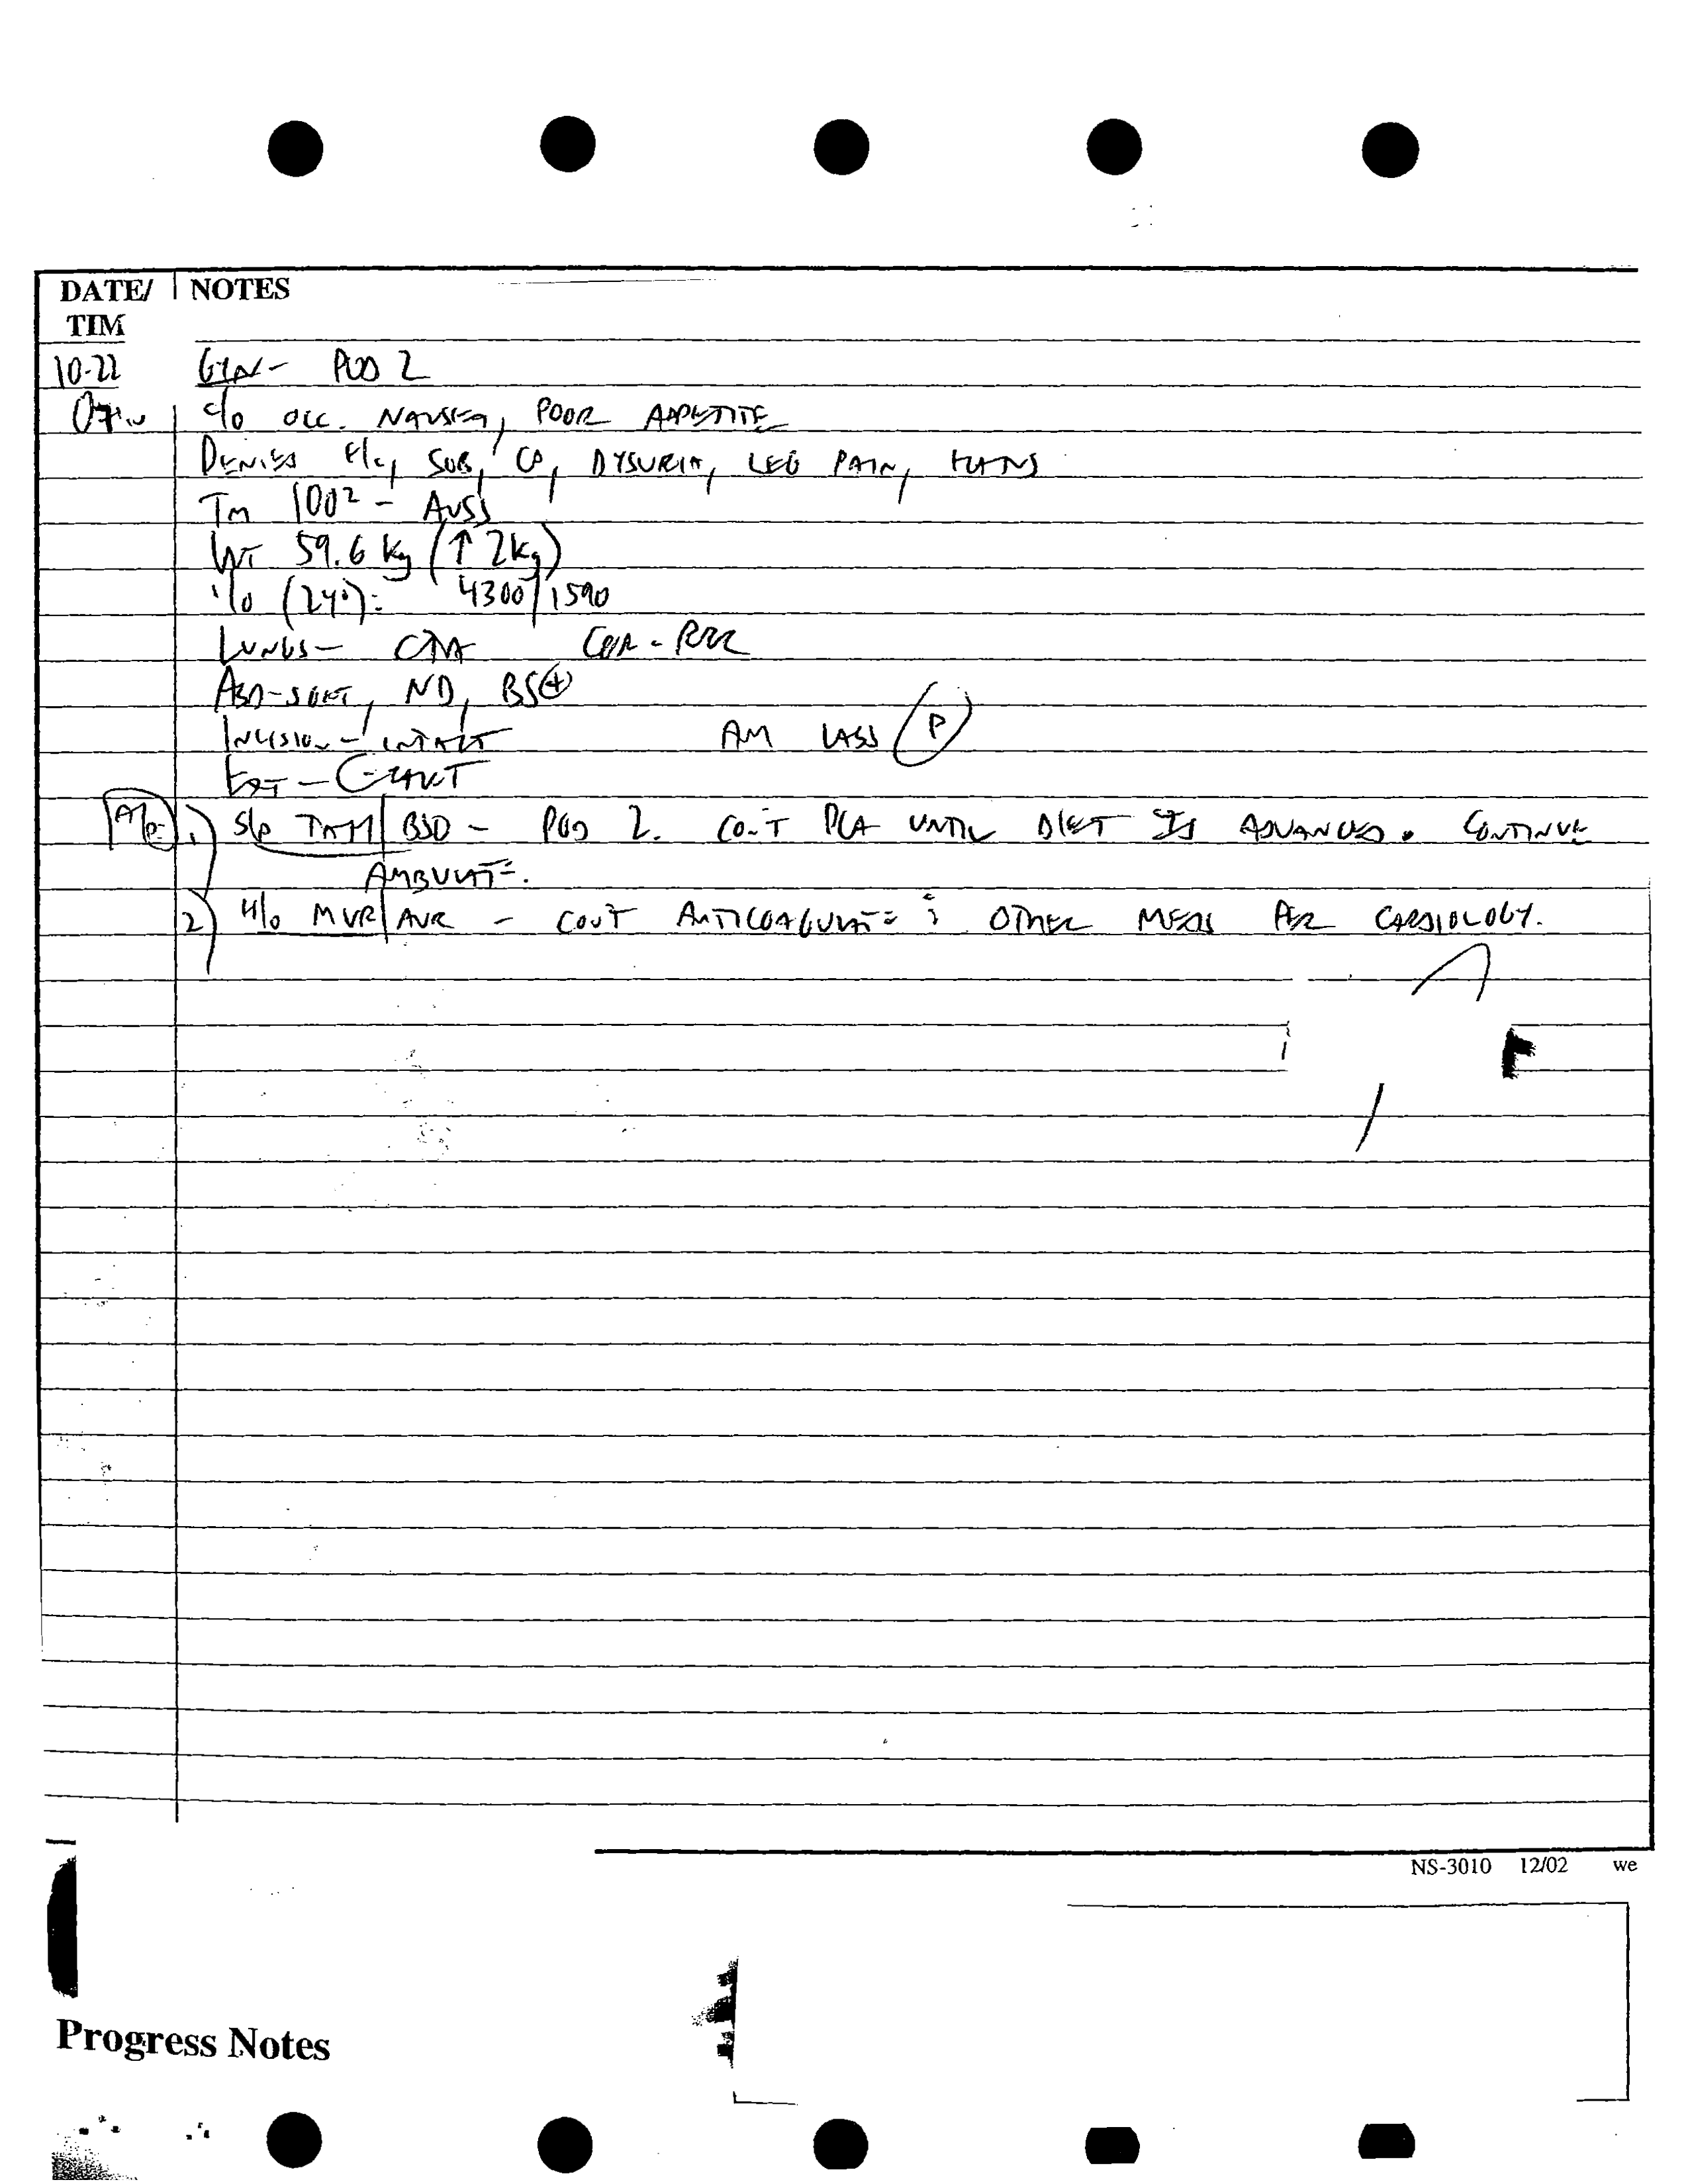 DATE/ NOTES
TIM
10-22 GYN- POD 2
c/o occ. NAUSEA, POOR APPETITE
DENIES F/C, SOB, CP, DYSURIA, LEG PAIN,
Tm 100² - AVSS
WT 59.6 kg (↑ 2kg)
I/O (24°): 4300/1590
LUNGS- CTA COR - RRR
ABD-SOFT, ND, BS⊕
INCISION - INTACT AM LABS Ⓟ
EXT -
A/P 1) S/P TAH/BSO - POD 2. CONT PCA UNTIL DIET IS ADVANCED. CONTINUE
AMBULATE.
2) H/O MVR/AVR - CONT ANTICOAGULATE OTHER MEDS PER CARDIOLOGY.
NS-3010 12/02 we
Progress Notes